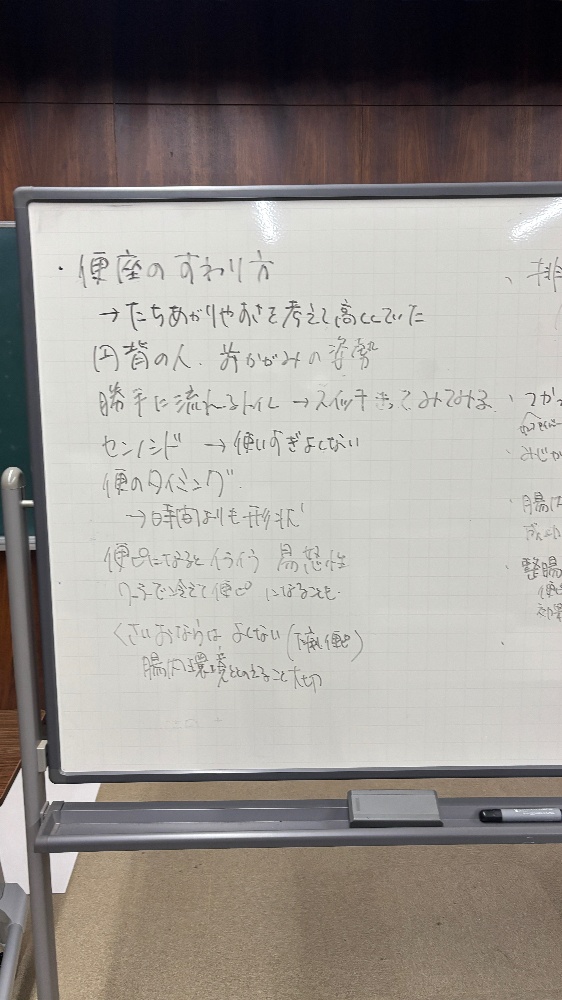 ・便座のすわり方
→たちあがりやすさを考えて高くしていた
円背の人、前かがみの姿勢
勝手に流れるトイレ→スイッチ切ってみてみる
センノシド →使いすぎよくない
便のタイミング
→時間よりも形状
便秘になるとイライラ 易怒性
クーラーで冷えて便秘になることも
くさいおならはよくない(下痢、便秘)
腸内環境ととのえること大切
・排
・つか
・みじか
・腸内
・整腸
便
効